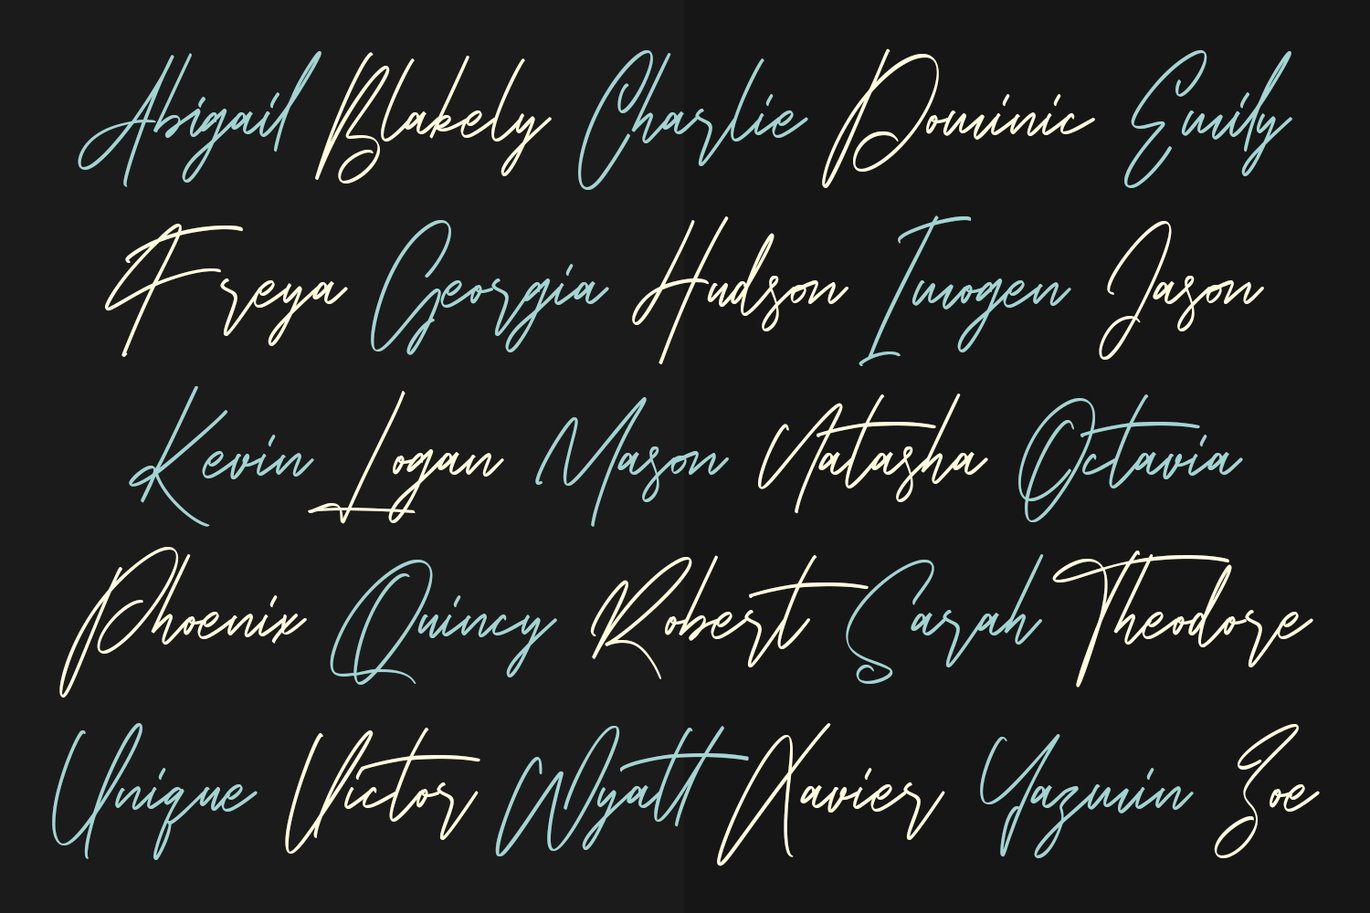 Abigail Blakely Charlie Dominic Emily
Freya Georgia Hudson Imogen Jason
Kevin Logan Mason Natasha Octavia
Phoenix Quincy Robert Sarah Theodore
Unique Victor Wyatt Xavier Yazmin Zoe